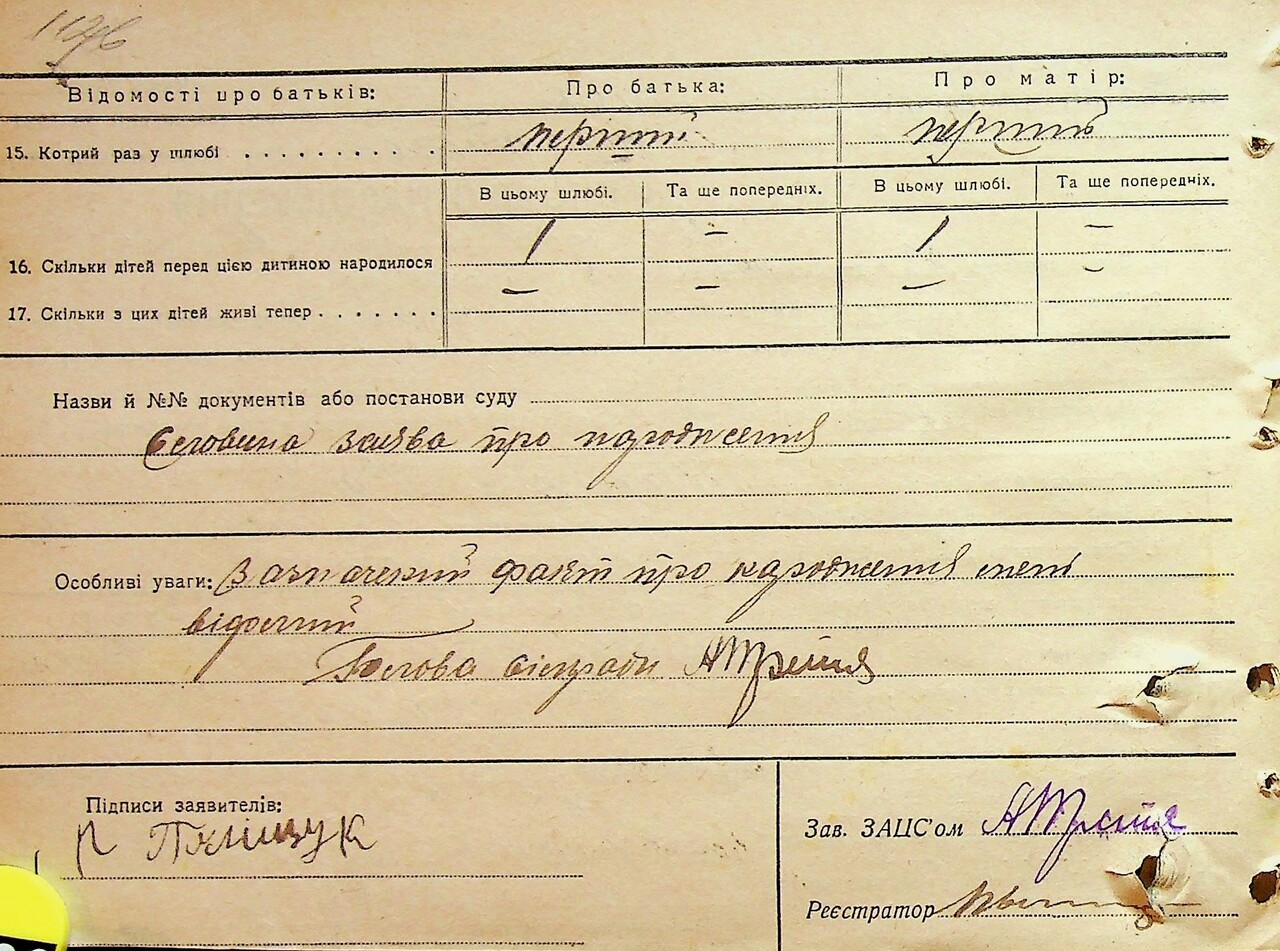 1176
Відомості про батьків: Про батька: Про матір:
15. Котрий раз у шлюбі . . . . . . . . . . . перший перший
В цьому шлюбі. Та ще попередніх. В цьому шлюбі. Та ще попередніх.
16. Скільки дітей перед цією дитиною народилося 1 – 1 –
17. Скільки з цих дітей живі тепер . . . . . . . – – – –
Назви й №№ документів або постанови суду
заява про народження
Особливі уваги: Зазначений факт про народження мені
відомий
Голова сільради
Підписи заявителів:
Зав. ЗАЦС'ом
Реєстратор